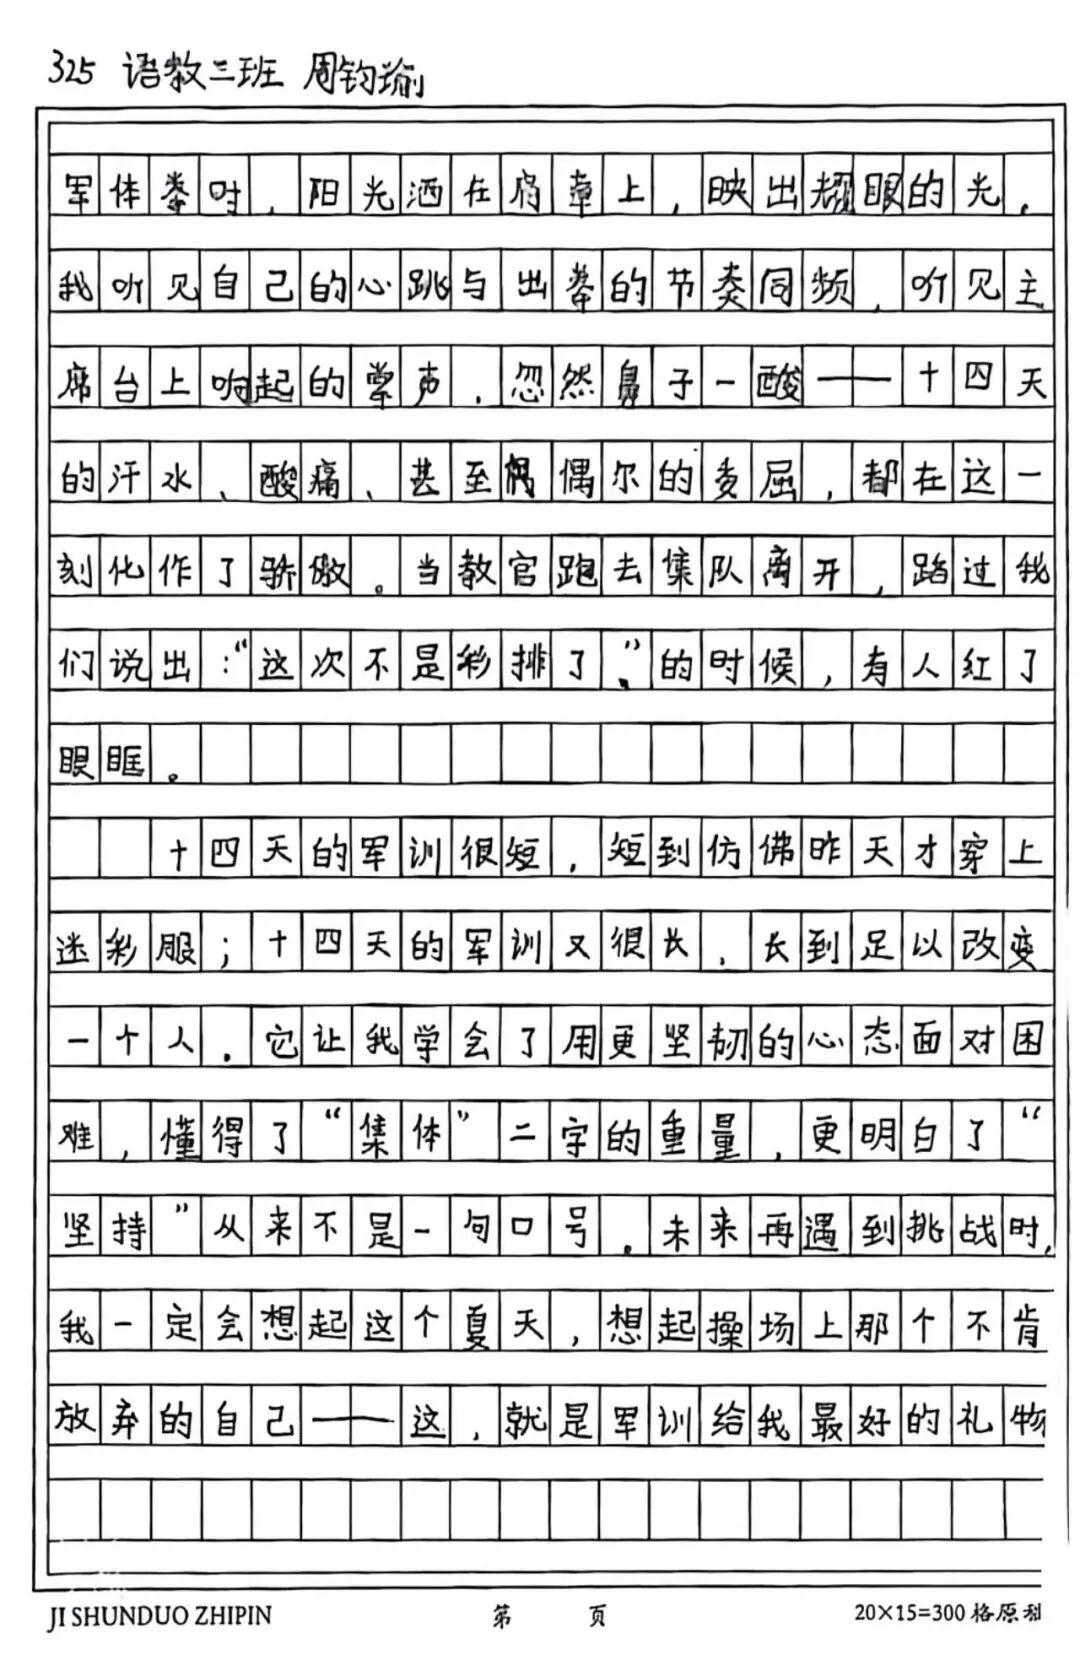 325 语数三班 周钧瑜
军体拳时，阳光洒在肩章上，映出耀眼的光，
我听见自己的心跳与出拳的节奏同频，听见主
席台上响起的掌声，忽然鼻子一酸——十四天
的汗水、酸痛、甚至偶偶尔的委屈，都在这一
刻化作了骄傲。当教官跑去集队离开，路过我
们说出：“这次不是彩排了。”的时候，有人红了
眼眶。
十四天的军训很短，短到仿佛昨天才穿上
迷彩服；十四天的军训又很长，长到足以改变
一个人．它让我学会了用更坚韧的心态面对困
难，懂得了“集体”二字的重量，更明白了“
坚持”从来不是一句口号．未来再遇到挑战时，
我一定会想起这个夏天，想起操场上那个不肯
放弃的自己——这，就是军训给我最好的礼物
JI SHUNDUO ZHIPIN 第 页 20×15=300格原稿